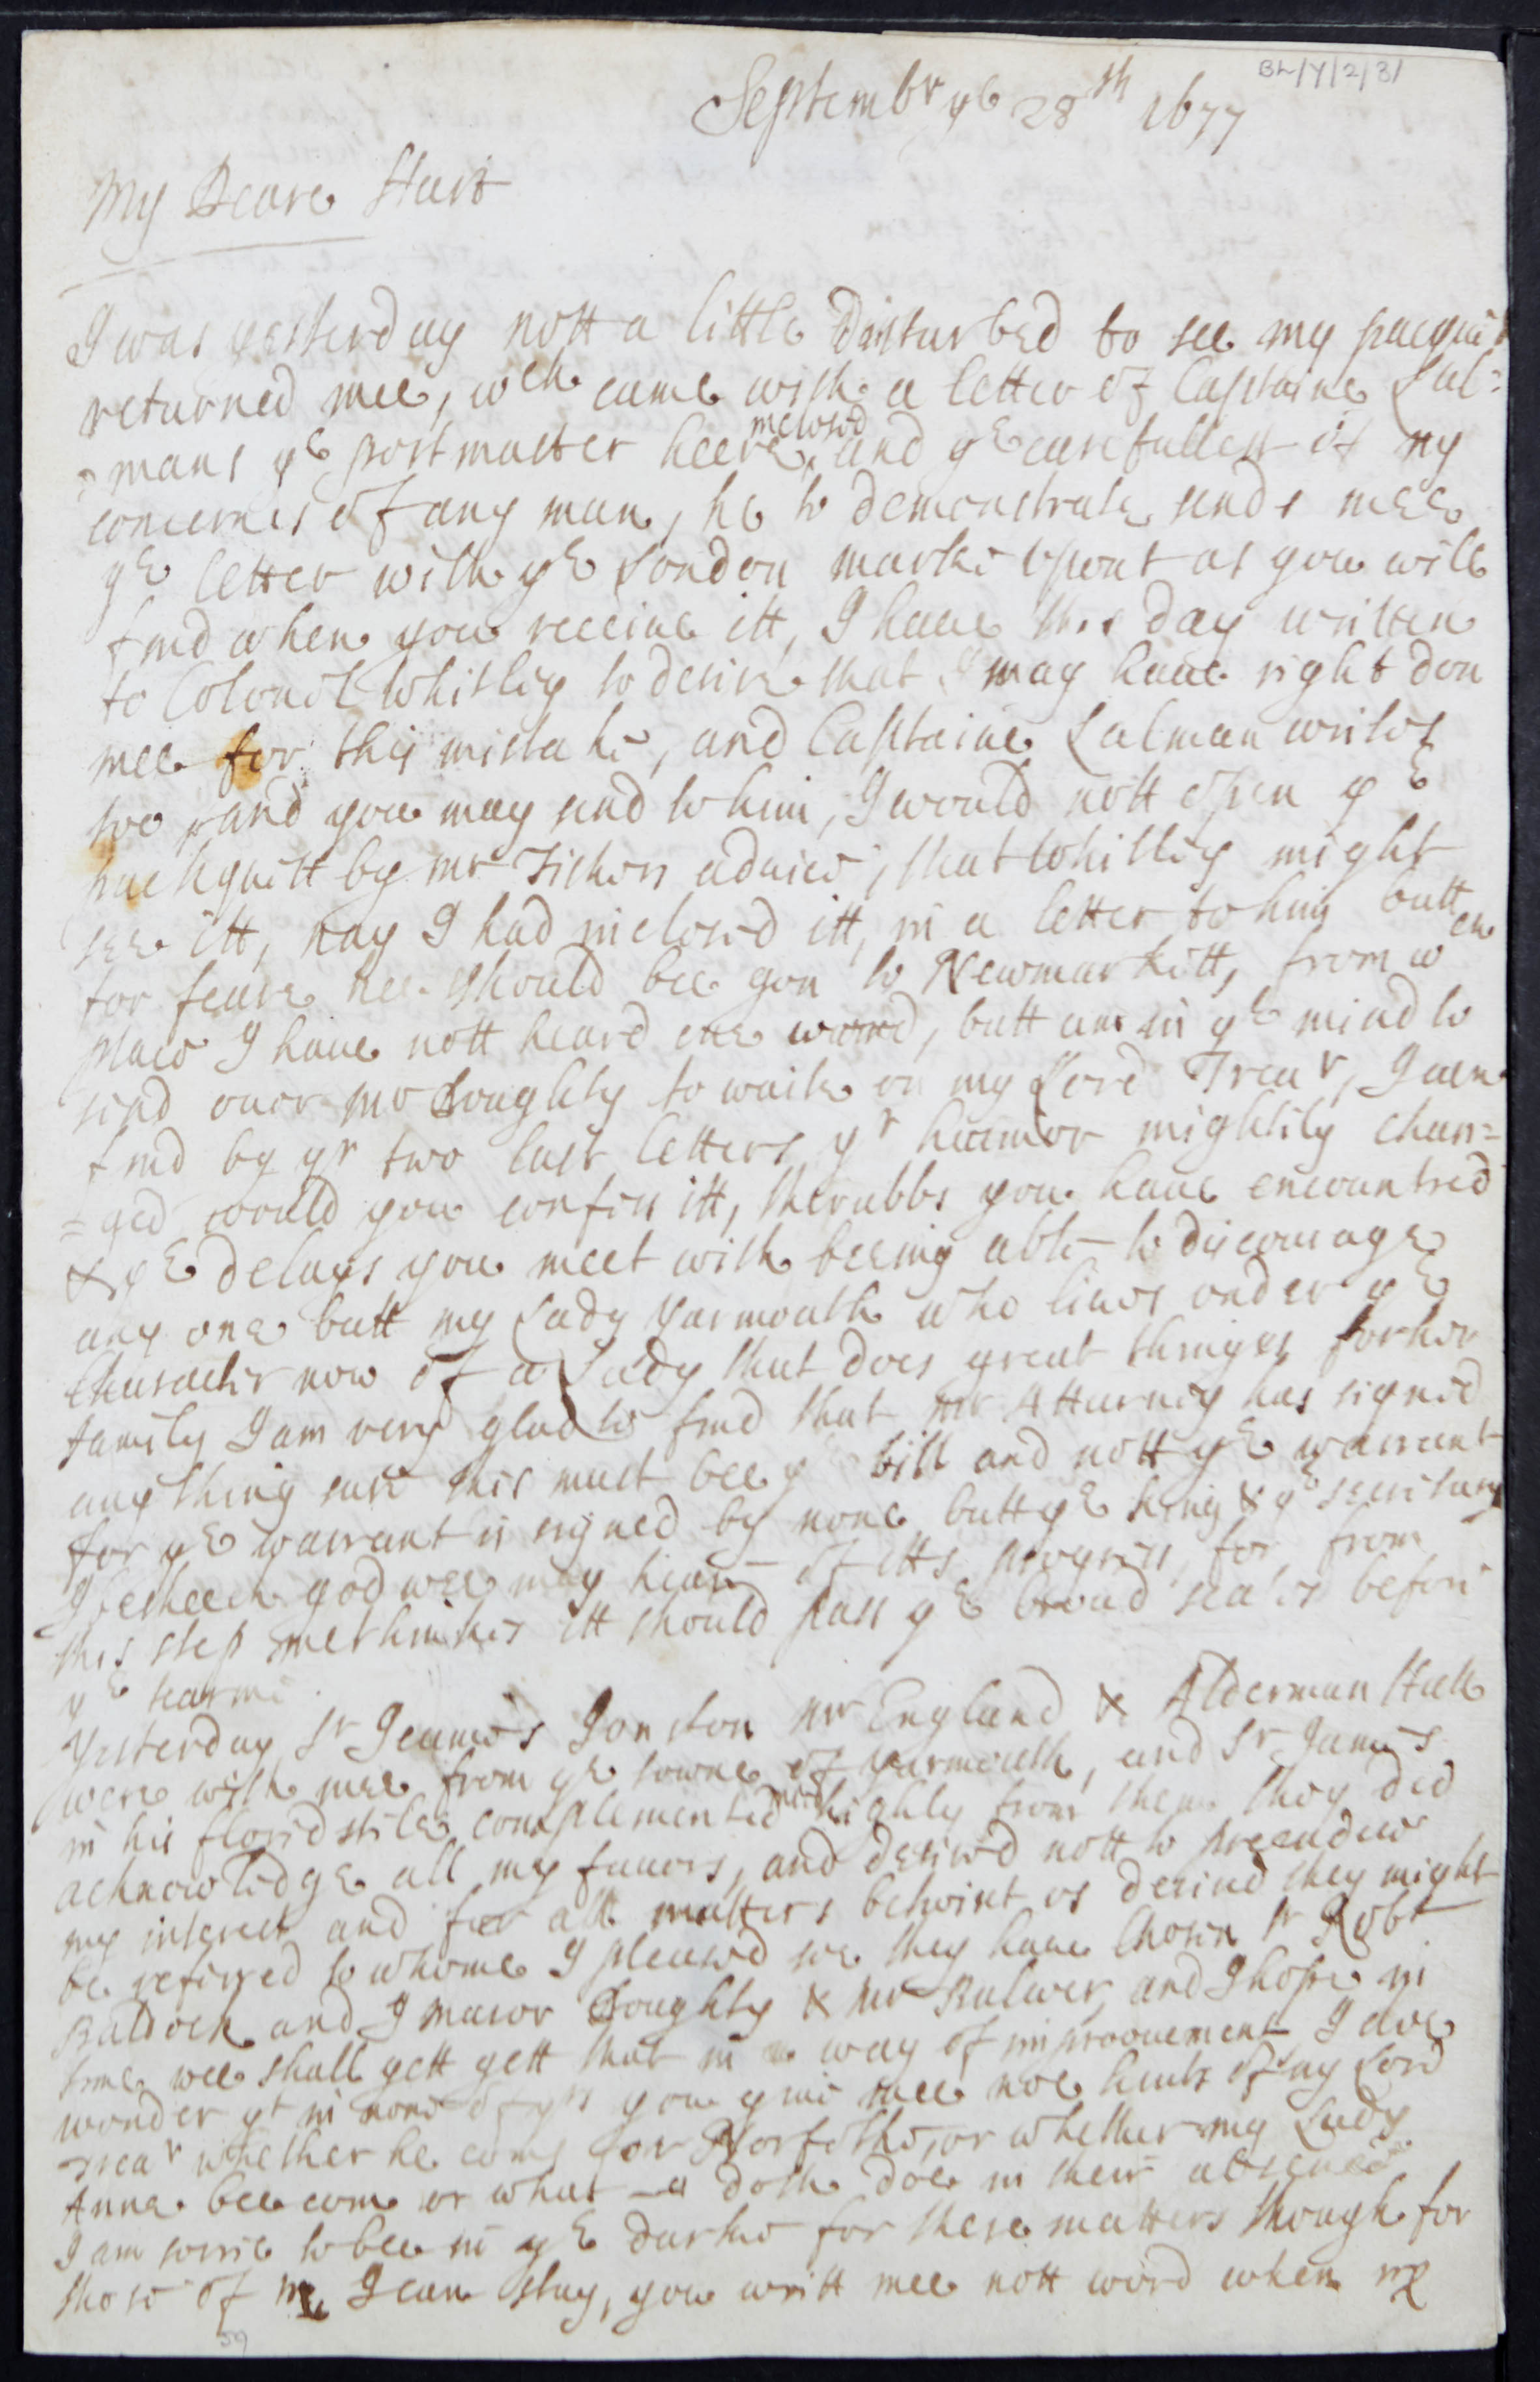 BL/Y/2/31
Septembr ye 28th 1677
My Deare Hart
I was yesterday nott a little disturbed to see my pacquit
returned mee, wch came with a letter of Captaine Lul=
=mans ye postmaster heere, inclosd and ye carefullest of my
concernes of any man, he to demonstrate sends mee
ye letter with ye London marke upont as you will
find when you receive itt, I have this day written
to Colonel Whitley to desire that I may have right don
mee for this mistake, and Captaine Lulman writes
too, and you may send to him, I would nott open ye
packquitt by mr advice, that Whitley might
see itt, nay I had inclosd itt, in a letter to him butt
for feare hee should bee gon to Newmarkitt, from wch
place I have nott heard one word, butt am in ye mind to
send over mr Doughty to waite on my Lord Trear, I can
find by yr two last letters yr humor mightily chan=
=ged would you confess itt, the rubbs you have encountred
& ye delays you meet with beeing able to discourage
any one butt my Lady Yarmouth who lives under ye
Character now of a Lady that does great things for her
family I am very glad to find that mr Atturney has signed
any thing sure this must bee ye bill and nott ye warrant
for ye warrant is signed by none butt ye king & ye secritary
I beseech god wee may heare of itts progress, for from
this step methinkes itt should pass ye broad seales before
ye tearme.
Yesterday Sr Jeames Jonston mr England & Alderman Hall
were with mee from ye towne of Yarmouth, and Sr James
in his florid stile complemented mee highly from them they did
acknowlidge all my favors, and desired nott to preiudice
my interest and for all matters betwixt us desired they might
be referred to whome I pleased soe they have chosen Sr Robt
Baldock and I Maior Doughty & mr Bulwer, and I hope in
time wee shall gett gett that in a way of improovement I doe
wonder yt in none of yrs you give mee noe hints of my Lord
Trear whether he coms for Norfolke, or whether my Lady
Anne bee come or what a doth doe in their absence
I am sorrie to bee in ye darke for these matters though for
those of me I can stay, you writt mee nott word when my
59